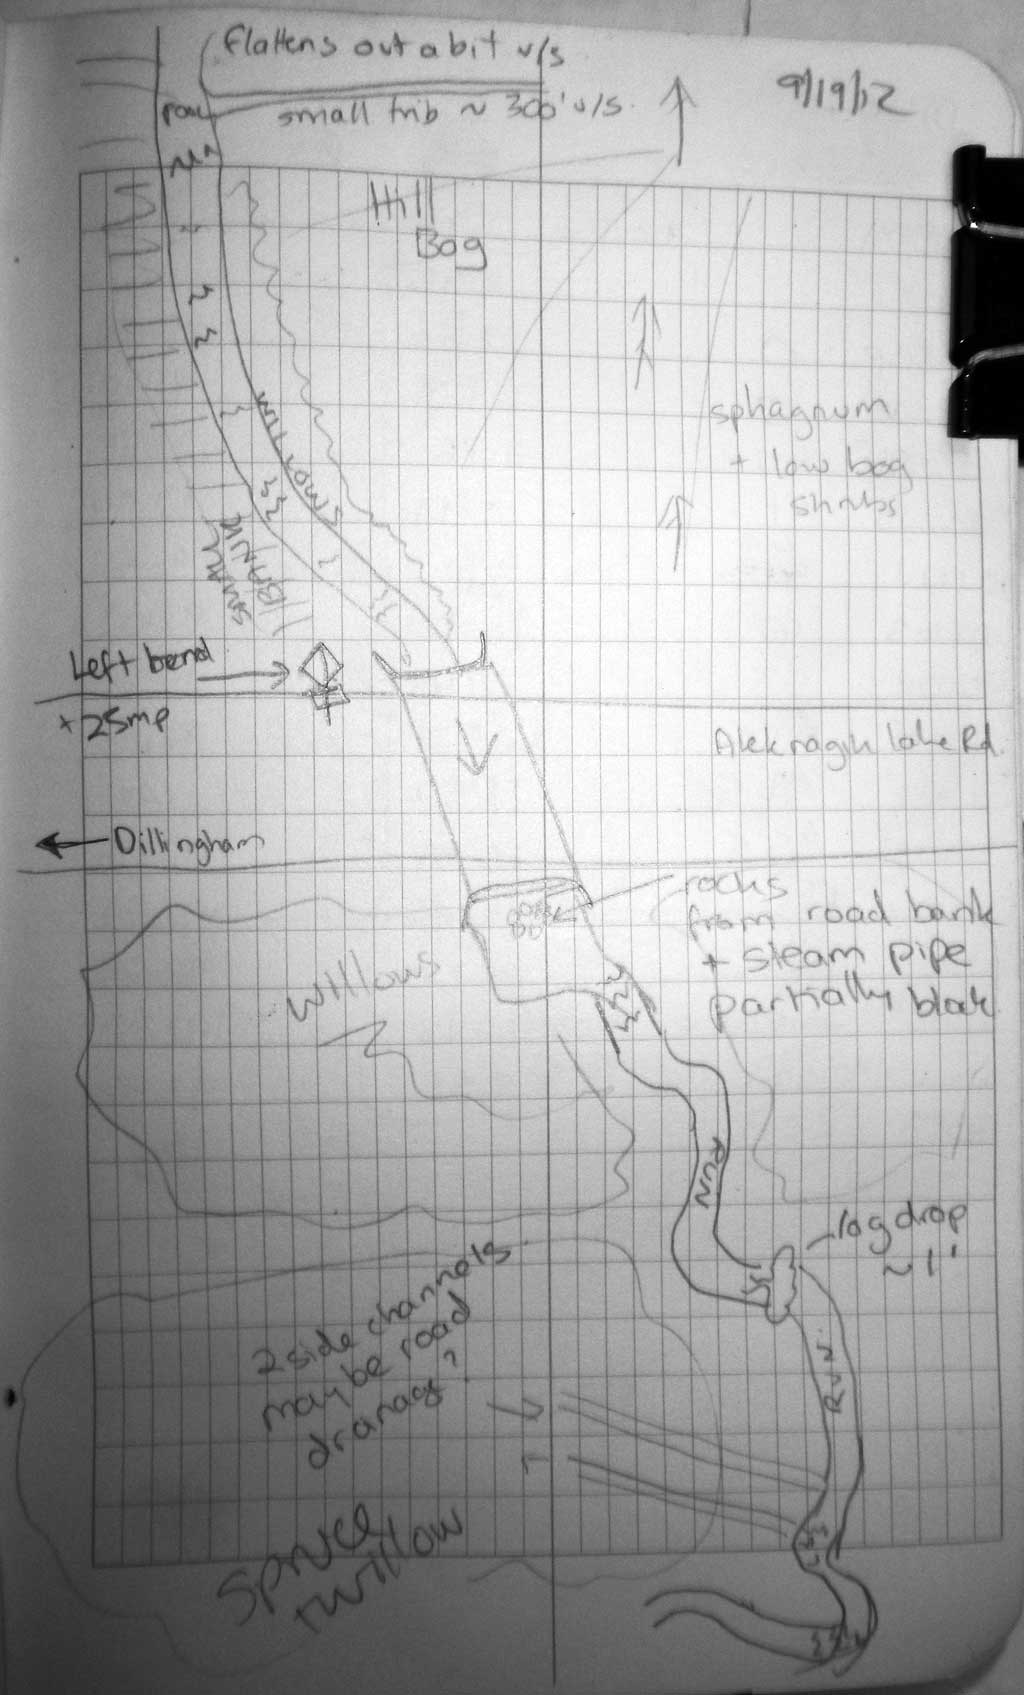 flattens out a bit u/s
9/19/12
small trib ~ 300' u/s.
Hill
Bog
sphagnum
+ low bog
shrubs
WILLOWS
SMALL
BANK
Left bend
+25mp
Aleknagik lake Rd.
Dillingham
rocks
from road bank
+ steam pipe
partially block
willows
RUN
log drop
~1'
2 side channels
may be road
drainage?
RUN
Spruce
+willow